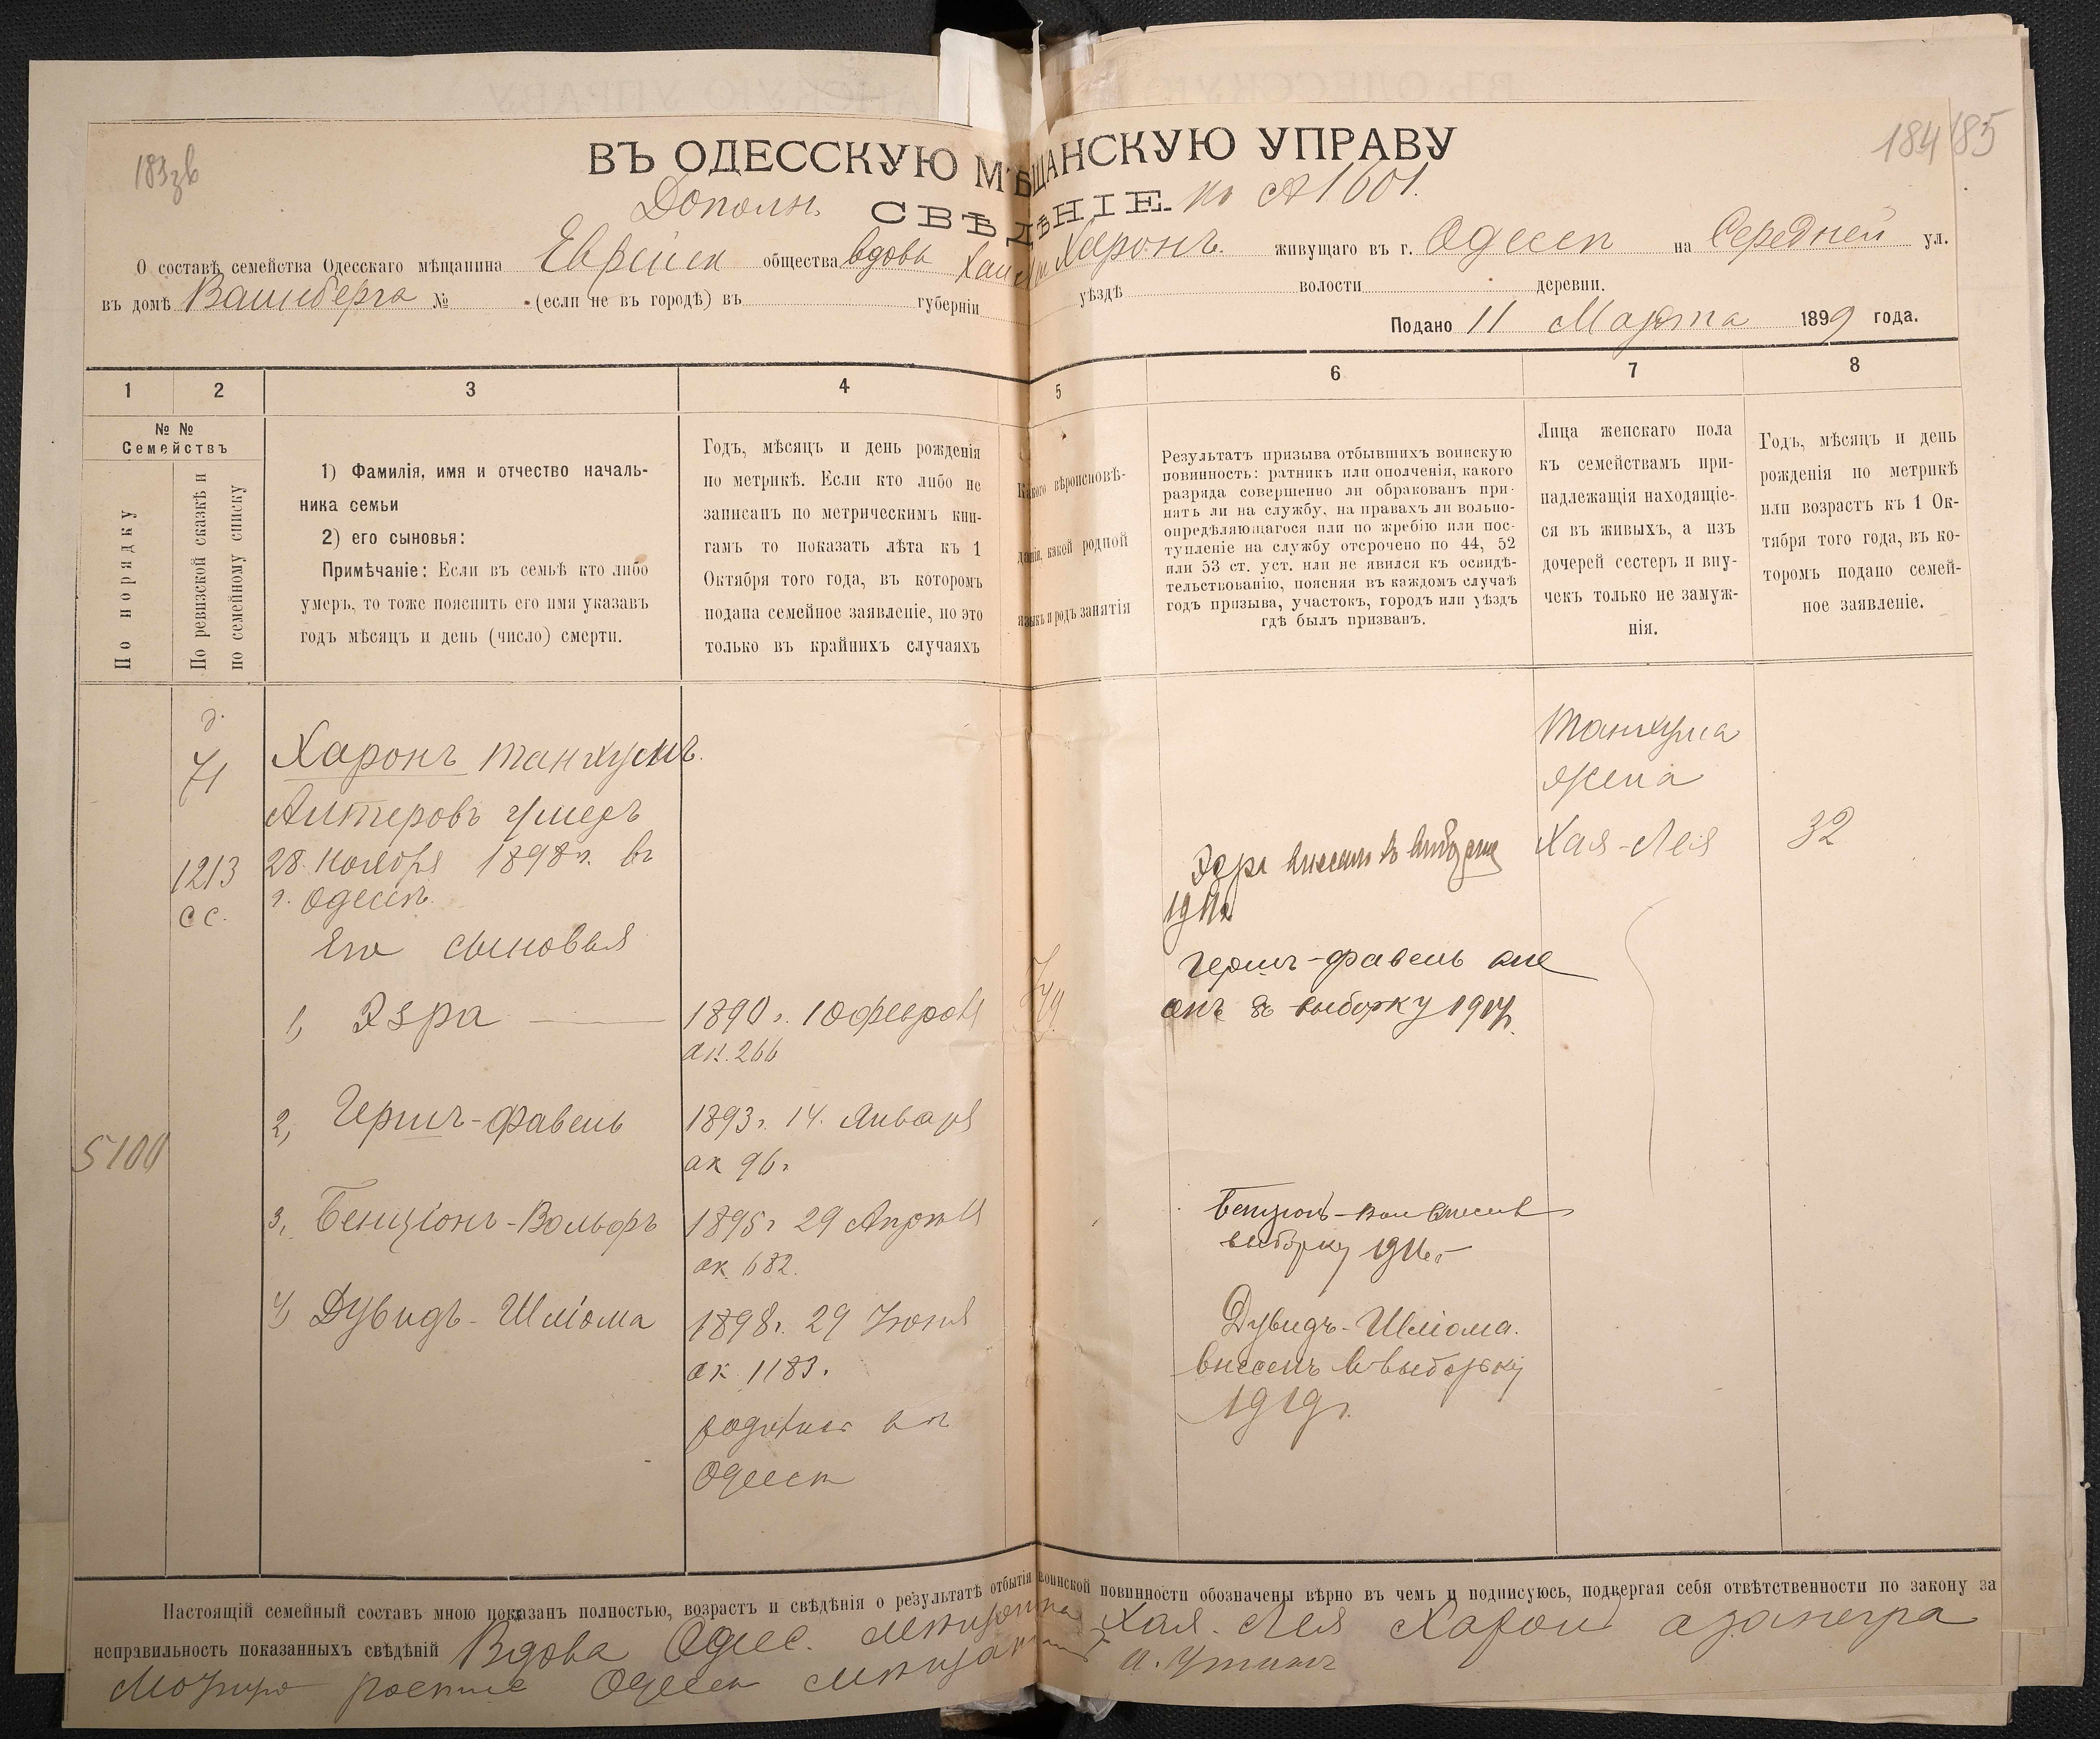 183зв
184 185
ВЪ ОДЕССКУЮ МѢЩАНСКУЮ УПРАВУ
Дополн. СВѢДѢНІЕ. по А 1601.
О составѣ семейства Одесскаго мѣщанина Еврейск общества вдова Хаи Леи Харонъ. живущаго въ г. Одессѣ на Средней ул.
въ домѣ Вайнберга № (если не въ городѣ) въ губерніи уѣздѣ волости деревни.
Подано 11 Марта 1899 года.
1 2 3 4 5 6 7 8
№ №
Семействъ
По порядку
По ревизской сказкѣ и
по семейному списку
1) Фамилія, имя и отчество началь-
ника семьи
2) его сыновья:
Примѣчаніе: Если въ семьѣ кто либо
умеръ, то тоже пояснить его имя указавъ
годъ мѣсяцъ и день (число) смерти.
Годъ, мѣсяцъ и день рожденія
по метрикѣ. Если кто либо не
записанъ по метрическимъ кни-
гамъ то показать лѣта къ 1
Октября того года, въ которомъ
подана семейное заявленіе, но это
только въ крайнихъ случаяхъ
Какого вѣроисповѣ-
данія, какой родной
языкъ и родъ занятія
Результатъ призыва отбывшихъ воинскую
повинность: ратникъ или ополченія, какого
разряда совершенно ли обракованъ при-
нять ли на службу, на правахъ ли вольно-
опредѣляющагося или по жребію или пос-
тупленіе на службу отсрочено по 44, 52
или 53 ст. уст. или не явился къ освидѣ-
тельствованію, поясняя въ каждомъ случаѣ
годъ призыва, участокъ, городъ или уѣздъ
гдѣ былъ призванъ.
Лица женскаго пола
къ семействамъ при-
надлежащія находящіе-
ся въ живыхъ, а изъ
дочерей сестеръ и вну-
чекъ только не замуж-
нія.
Годъ, мѣсяцъ и день
рожденія по метрикѣ
или возрастъ къ 1 Ок-
тября того года, въ ко-
торомъ подано семей-
ное заявленіе.
71
1213
сс.
5100
Харонъ Танхумъ
Алтеровъ умеръ
28 Ноября 1898 г. въ
г. Одессѣ
Его сыновья
1, Эзра
2, Гершъ-Фавель
3, Бенціонъ-Вольфъ
4, Дувидъ-Шліома
1890 г. 10 февраля
ак. 266
1893 г. 14 Января
ак 96.
1895 г 29 Апреля
ак. 682.
1898 г. 29 Іюня
ак 1183.
родились въ
Одессѣ
Іуд
Эзра внесенъ в выборку
1911 г.
Гершъ-Фавель вне
сенъ въ выборку 1914 г.
Бенціонъ-Вол внесенъ в
выборку 1916 г
Дувидъ-Шліома.
внесенъ въ выборку
1919 г.
Танхума
жена
Хая-Лея
32
Настоящій семейный составъ мною показанъ полностью, возрастъ и свѣдѣнія о результатѣ отбытія воинской повинности обозначены вѣрно въ чемъ и подписуюсь, подвергая себя отвѣтственности по закону за
неправильность показанныхъ свѣдѣній Вдова Одес. мѣщанка Хая-Лея Харонъ а за негра
мотную росписался Одесск мѣщанинъ